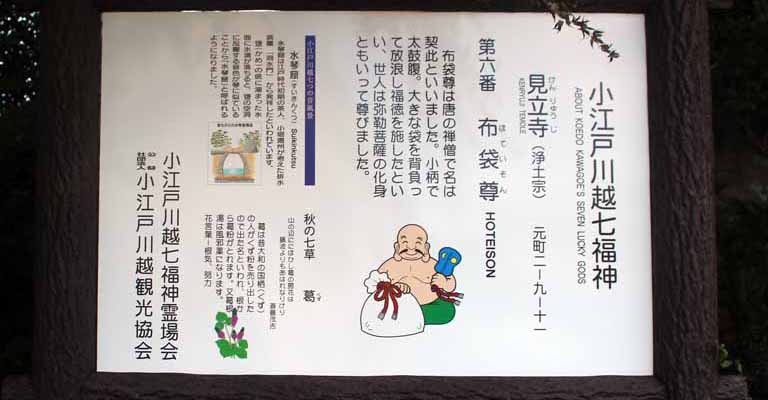 小江戸川越七福神
ABOUT KOEDO KAWAGOE'S SEVEN LUCKY GODS
見立寺（浄土宗） 元町二ー九ー十一
けんりゅうじ
KENRYUJI TEMPLE
第六番 布袋尊 HOTEISON
ほていそん
布袋尊は唐の禅僧で名は
契此といいました。小柄で
太鼓腹。大きな袋を背負っ
て放浪し福徳を施したとい
い、世人は弥勒菩薩の化身
ともいって尊びました。
小江戸川越七つの音風景
水琴窟（すいきんくつ） Suikinkutsu
水琴窟は江戸時代初期の茶人、小堀遠州が考えた排水
装置「洞水門」から発祥したといわれています。
甕（かめ）の底に溜まった水
面に水滴が落ちると、甕の空洞
に反響する音色が琴に似ている
ことから「水琴窟」と呼ばれる
ようになりました。
秋の七草 葛
くず
山の辺ににほひし葛の房花は
藤波よりもあはれなりけり
斎藤茂吉
葛は昔大和の国栖（くず）
の人がくず粉を売り出した
ので出た名といわれ、根か
ら葛粉がとれます。又葛根
湯は風邪薬になります。
花言葉ー根気、努力
小江戸川越七福神霊場会
公益
社団法人 小江戸川越観光協会